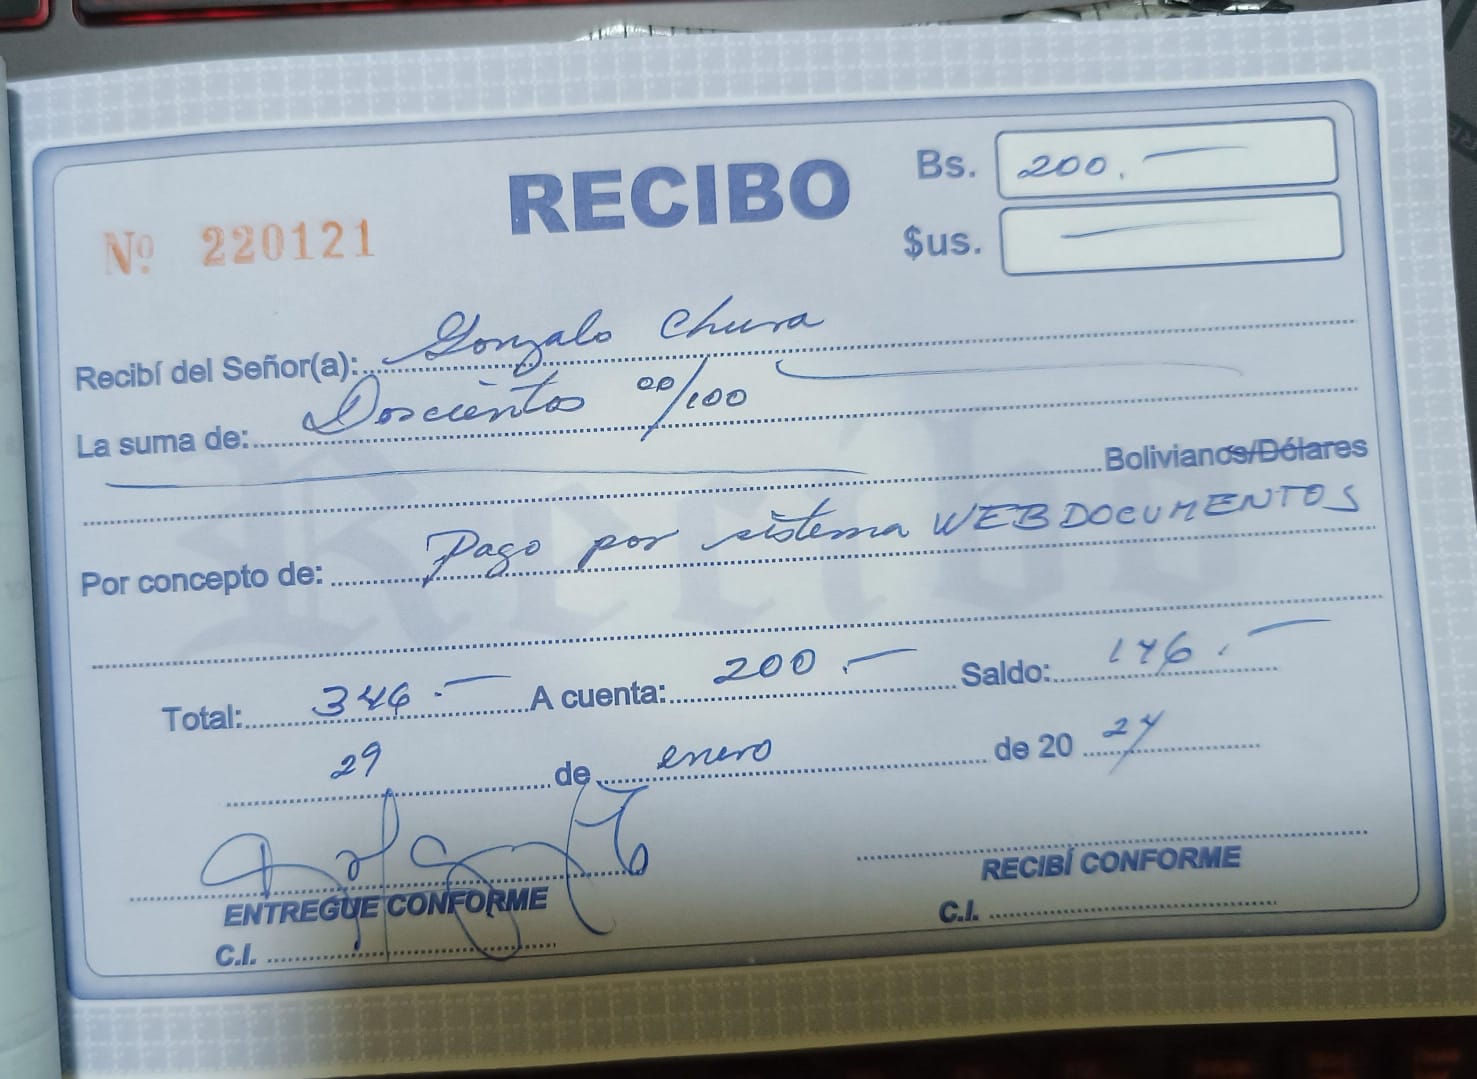 RECIBO
Bs. 200.-
Nº 220121
$us. -
Recibí del Señor(a): Gonzalo Chura
La suma de: Doscientos 00/100
Bolivianos/Dólares
Por concepto de: Pago por sistema WEBDOCUMENTOS
Total: 346.- A cuenta: 200.- Saldo: 146.-
29 de enero de 20 24
ENTREGUE CONFORME
RECIBÍ CONFORME
C.I.
C.I.
Recibo